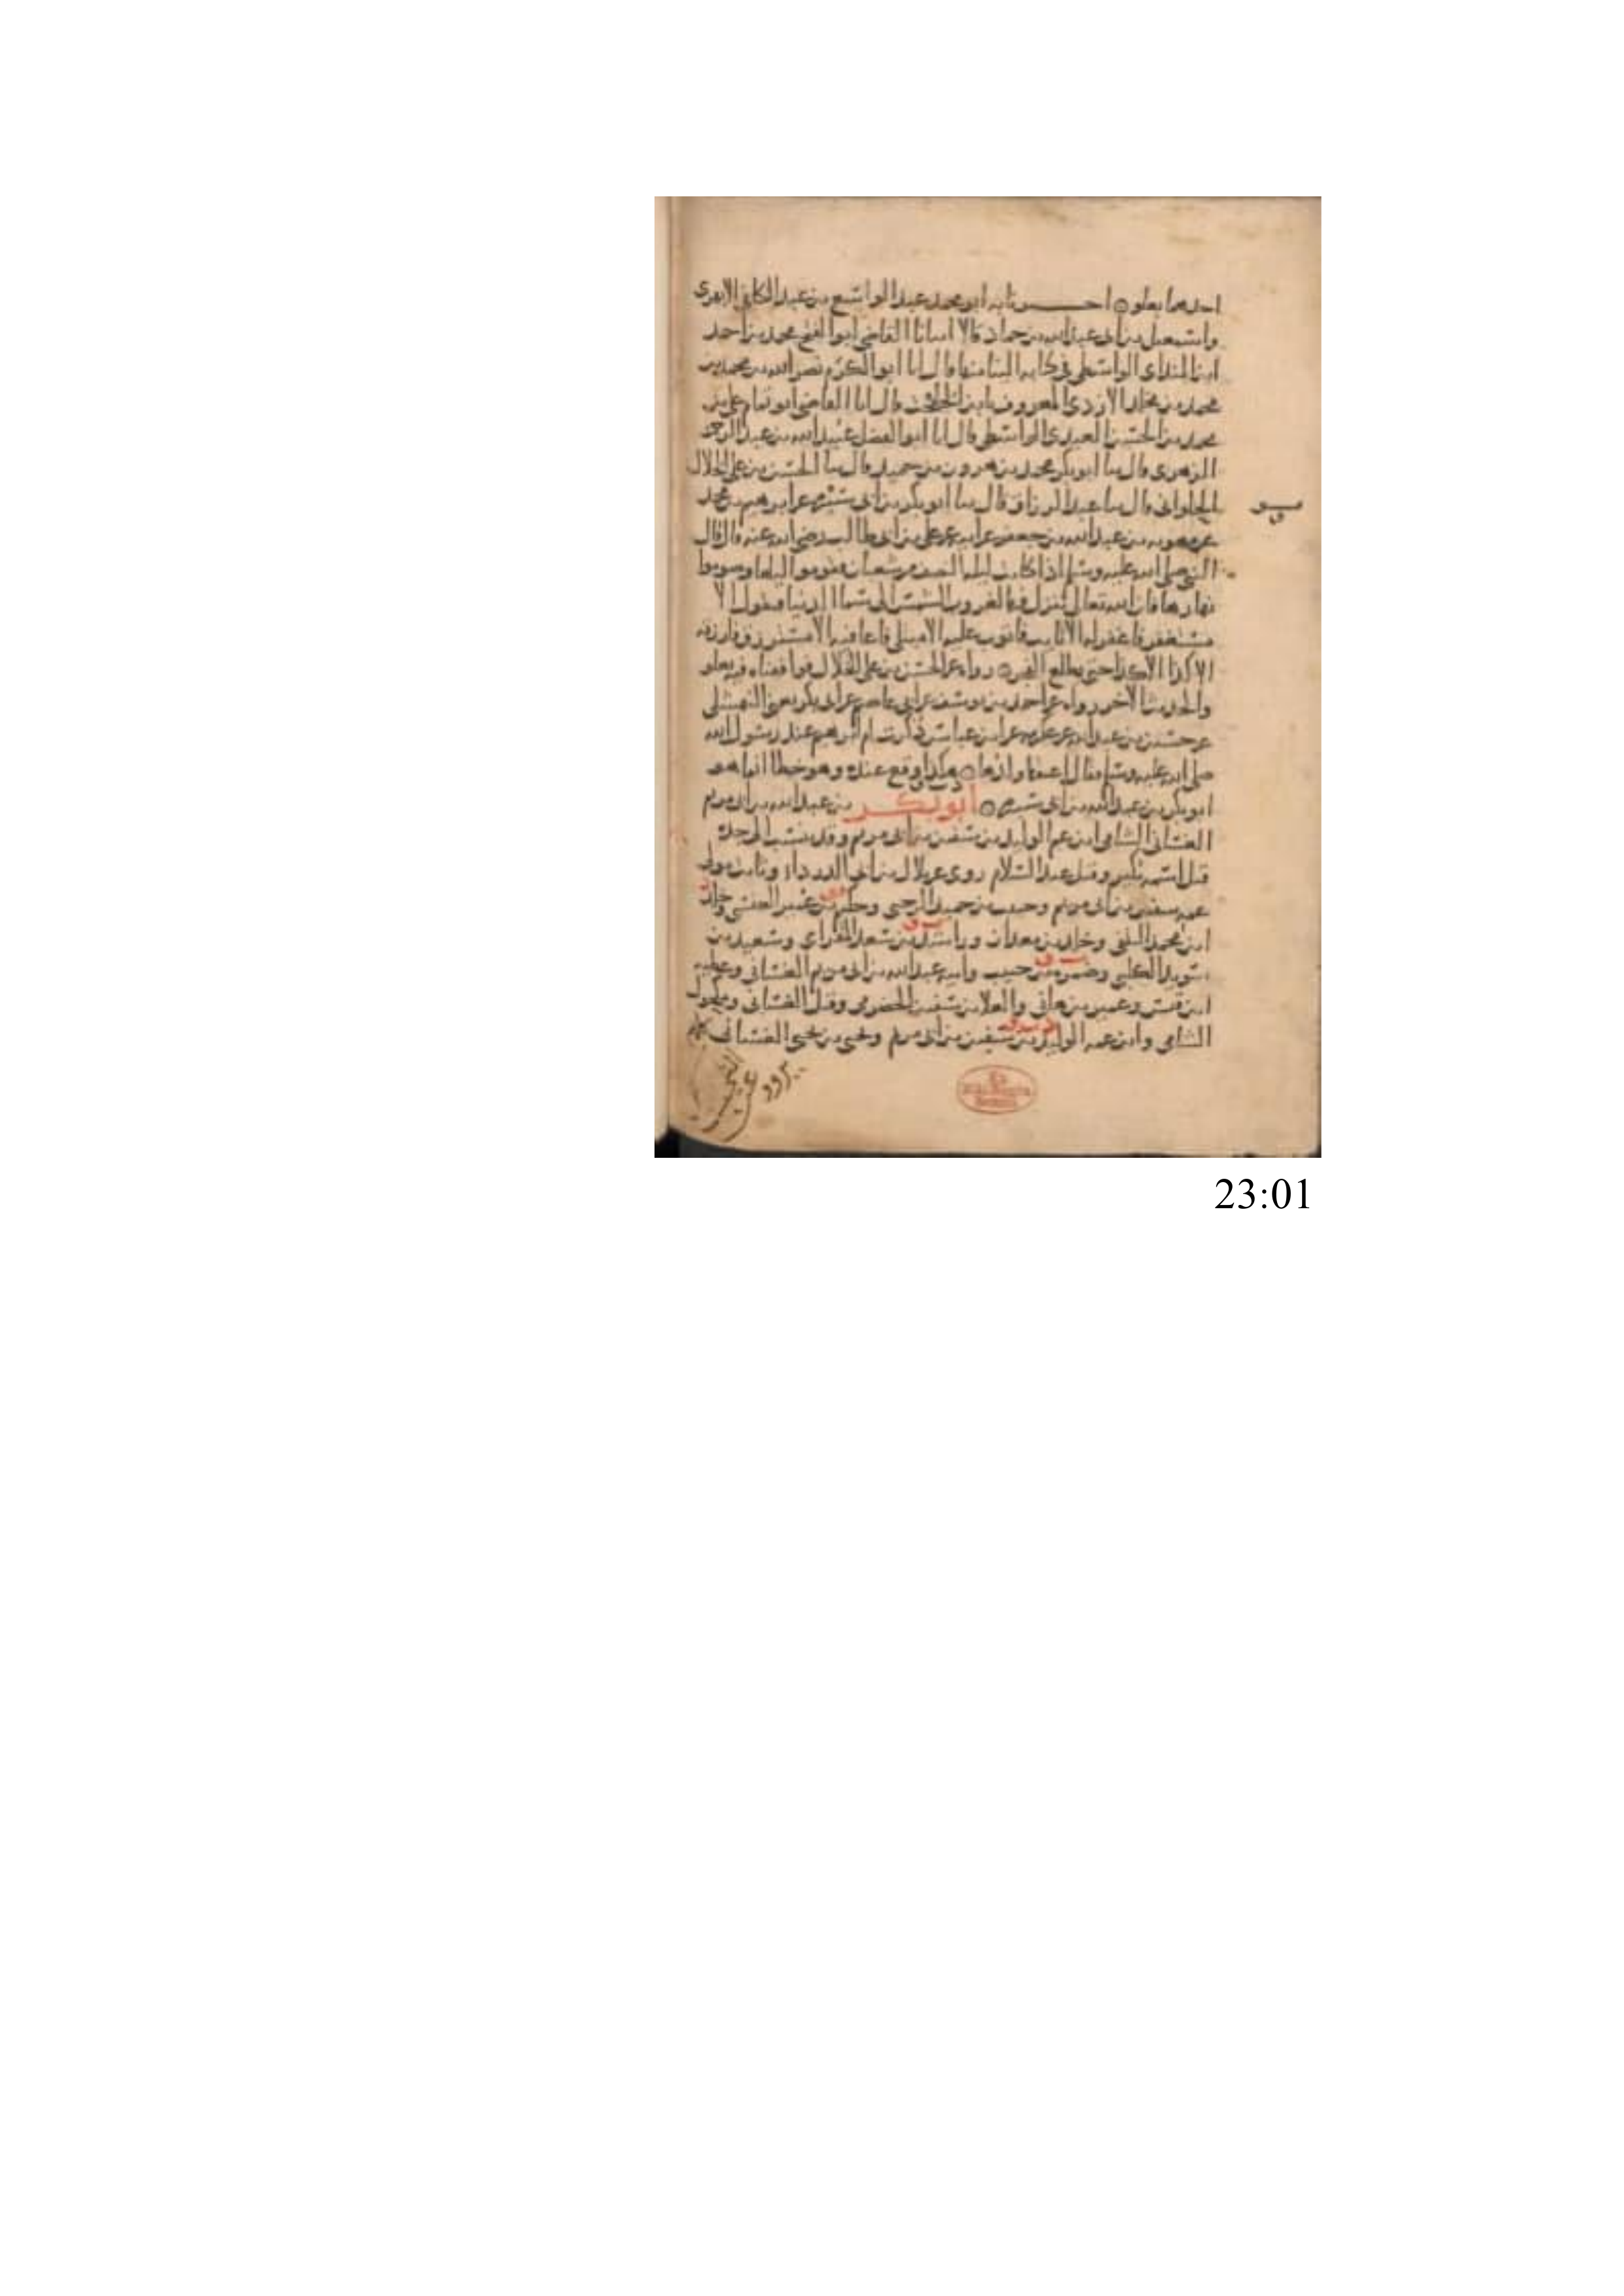 احدهما بعلو احبرنا به ابو محمد عبد الواسع بن عبد الكافي الابهرى
واسمعيل بن ابى عبد الله بن حماد قالا انبانا القاضى ابو الفتح محمد بن احمد
ابن المنداى الواسطى فى كتابه الينا منها قال انا ابو الكرم نصر الله بن محمد بن
محمد بن مخلد الازدى المعروف بابن الجلخت قال انا القاضى ابو تمام على بن
محمد بن الحسن العبدى الواسطى قال انا ابو الفضل عبيد الله بن عبد الرحمن
الزهرى قال سا ابو بكر محمد بن هرون بن حميد قال سا الحسن بن على الخلال
الحلوانى قال سا عبد الرزاق قال سا ابو بكر بن ابى سبرة عن ابرهيم بن محمد
عن معوية بن عبد الله بن جعفر عن ابيه عن على بن ابى طالب رضى الله عنه قال قال
النبى صلى الله عليه وسلم اذا كانت ليلة النصف من شعبان فقوموا ليلها وصوموا
نهارها فان الله تعالى ينزل فيها لغروب الشمس الى سما الدنيا فيقول الا
مستغفر فاغفر له الا تايب فاتوب عليه الا مبتلى فاعافيه الا مسترزق فارزقه
الا كذا الا كذا حتى يطلع الفجر رواه عن الحسن بن على الخلال فوافقناه فيه بعلو
والحديث الاخر رواه عن احمد بن يوسف عن ابى عاصم عن ابى بكر يعنى النهشلى
عن حسين بن عبد الله عن عكرمة عن ابن عباس ذكرت ام ابرهيم عند رسول الله
صلى الله عليه وسلم فقال اعتقها ولدها هكذا وقع عنده وهو خطا انما هو
ابو بكر بن عبد الله بن ابى سبرة ابو بكر بن عبد الله بن ابى مريم
الغسانى الشامى ابن عم الوليد بن سفين بن ابى مريم وقد ينسب الى جده
قيل اسمه بكير وقيل عبد السلام روى عن بلال بن ابى الدرداء وثابت مولى
عمه سفين بن ابى مريم وحبيب بن عبيد الرحبى وحكيم بن عمير العنسى وخالد
ابن محمد الثقفى وخالد بن معدان وراشد بن سعد المقراى وسعيد بن
سويد الكلبى وضمرة بن حبيب وابيه عبد الله بن ابى مريم الغسانى وعطية
ابن قيس وعمير بن هانى والعلا بن سفين الحضرمى وقيل الغسانى ومكحول
الشامى وابن عمه الوليد بن سفين بن ابى مريم ويحيى بن يحيى الغسانى
23:01